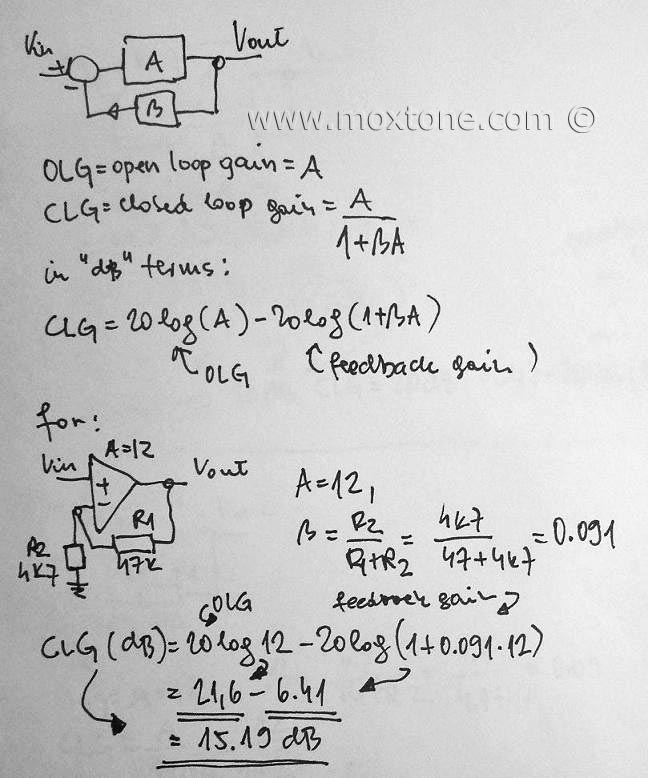 Vin
Vout
+
A
-
B
www.moxtone.com ©
OLG=open loop gain = A
CLG=closed loop gain = A
1+βA
in "dB" terms:
CLG = 20log(A) - 20log(1+βA)
OLG (feedback gain)
for:
A=12
Vin
Vout
+
-
R1
47K
R2
4K7
A=12,
β = R2 / R1+R2 = 4k7 / 47+4k7 = 0.091
feedback gain
OLG
CLG (dB) = 20log12 - 20log(1+0.091·12)
= 21,6 - 6.41
= 15.19 dB